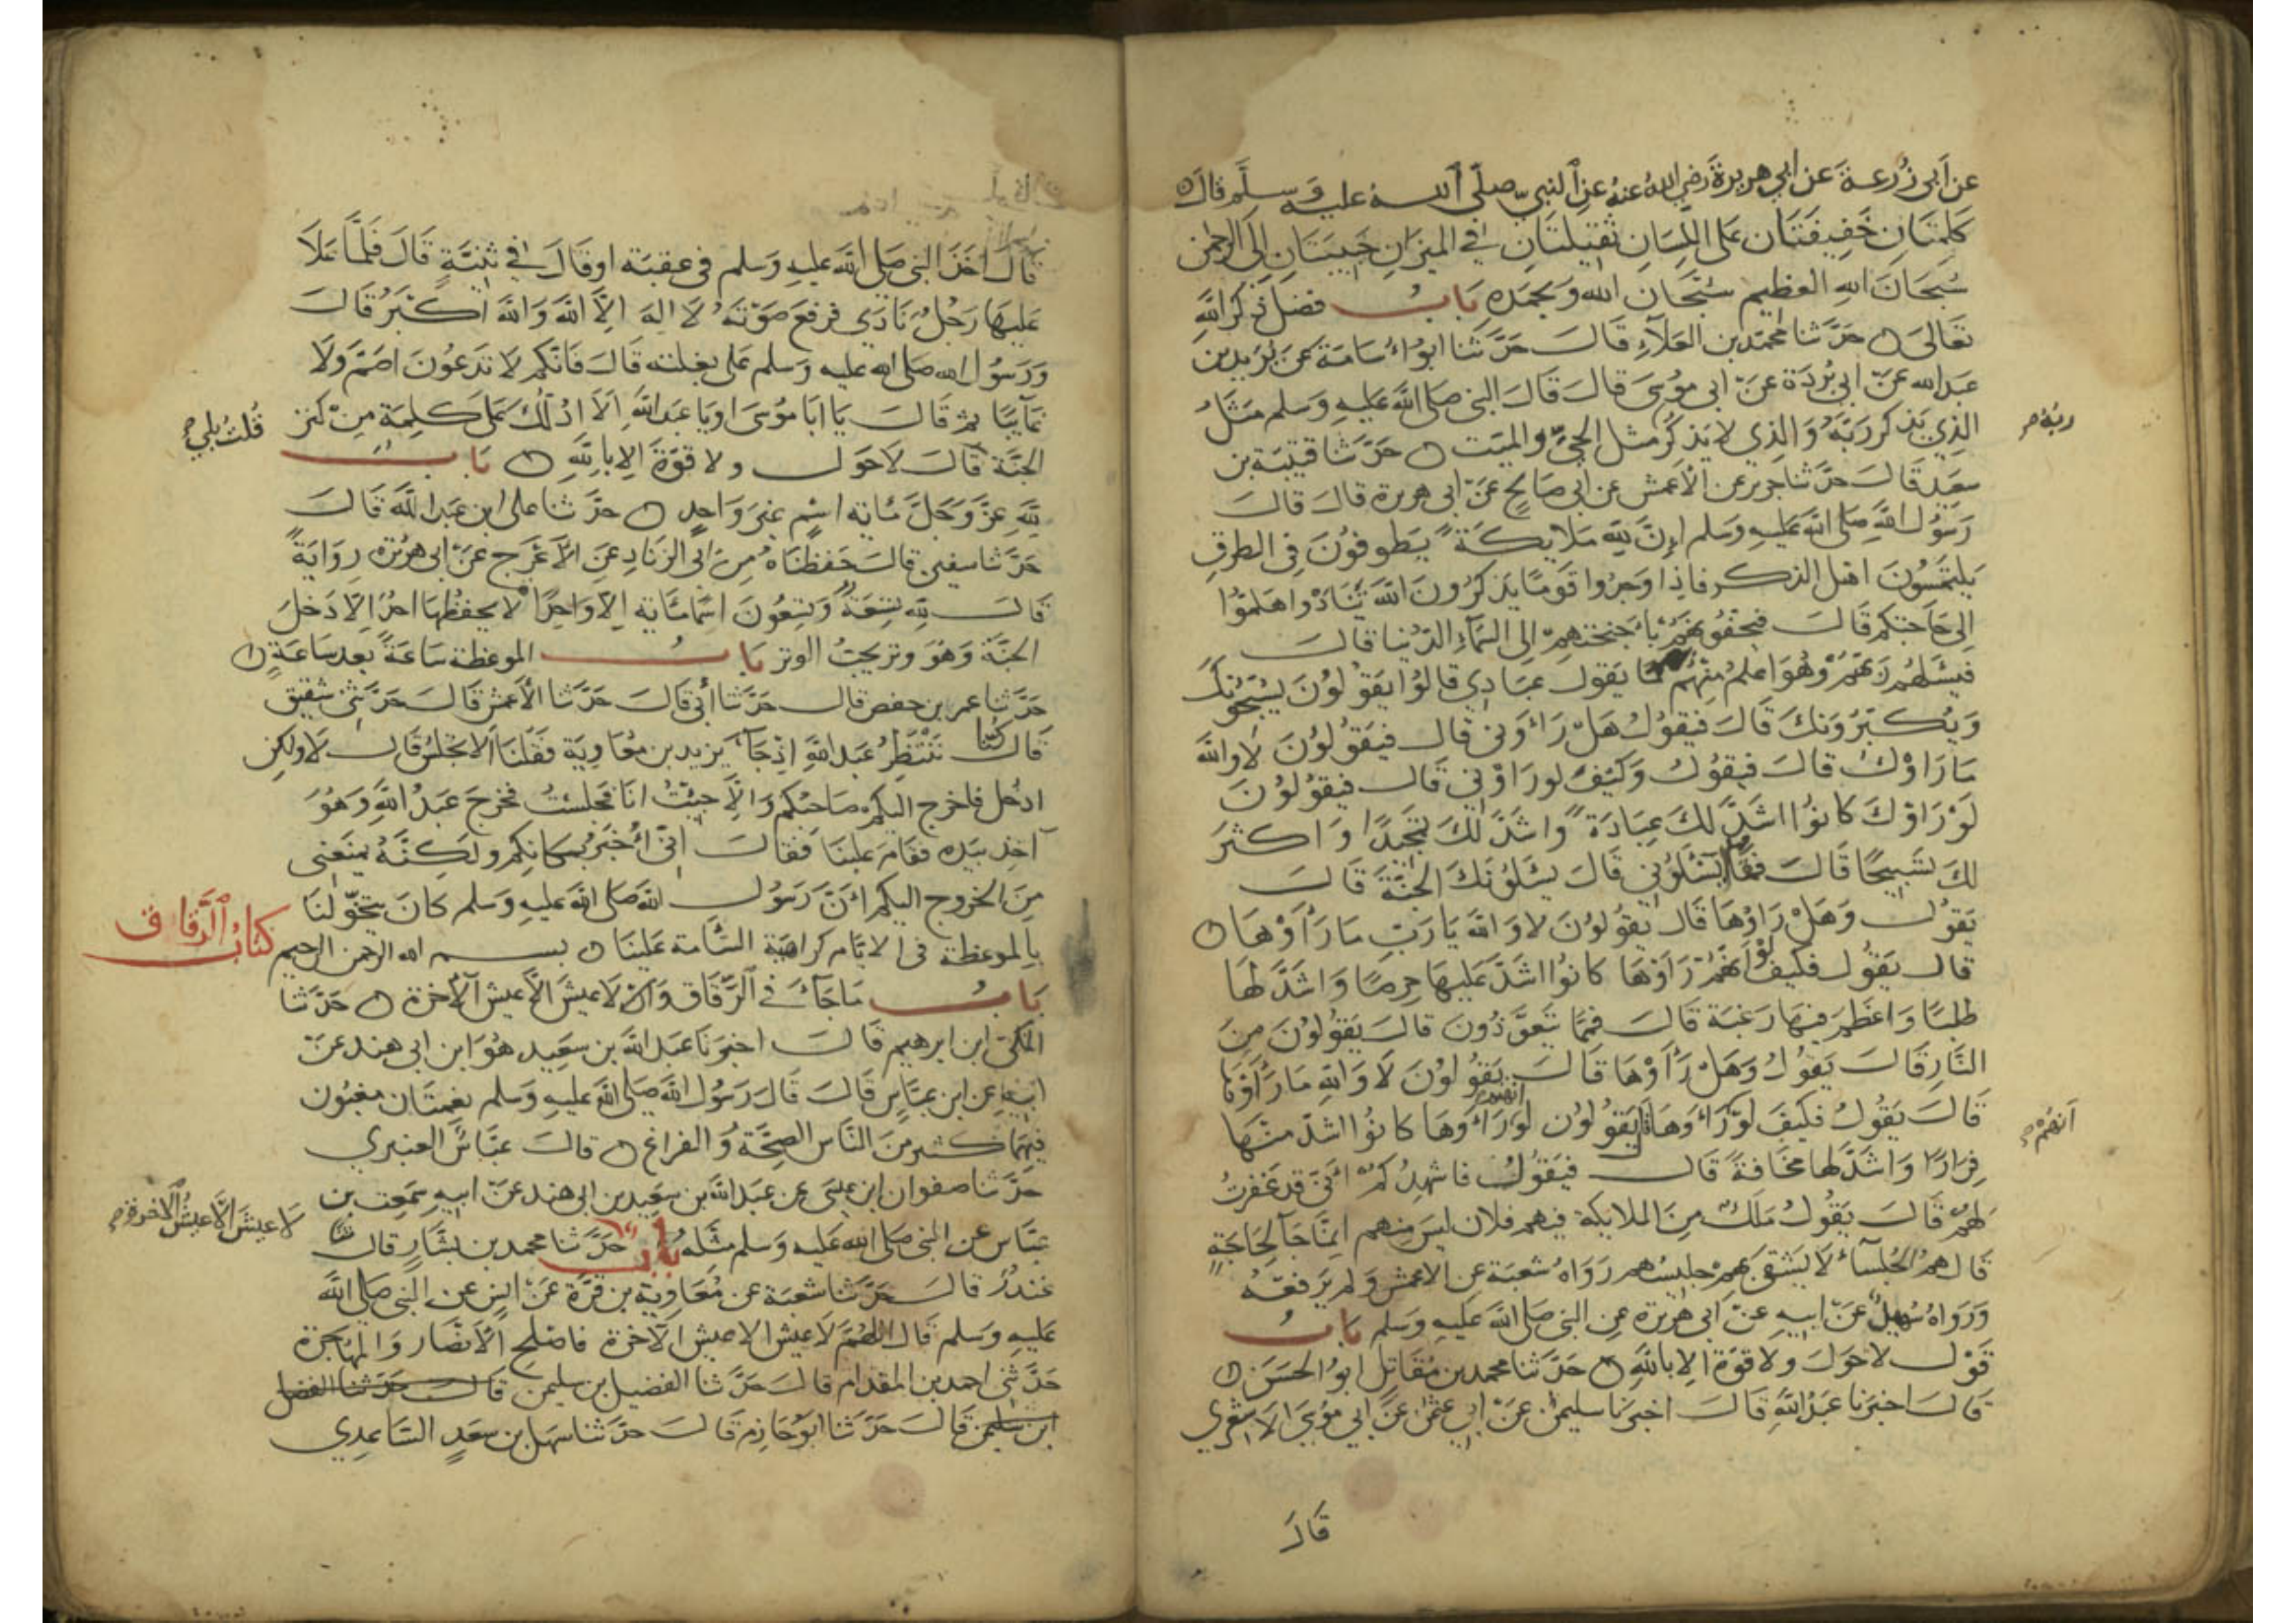 عن أبي زُرعة عن أبي هريرة رضي الله عنه عن النبي صلى الله عليه وسلم قال
كلمتان خفيفتان على اللسان ثقيلتان في الميزان حبيبتان إلى الرحمن
سبحان الله العظيم سبحان الله وبحمده باب فضل ذكر الله
تعالى حدثنا محمد بن العلاء قال حدثنا ابو اسامة عن بريد بن
عبد الله عن ابي بردة عن ابي موسى قال قال النبي صلى الله عليه وسلم مثل
الذي يذكر ربه والذي لا يذكر مثل الحي والميت حدثنا قتيبة بن
ربه
سعيد قال حدثنا جرير عن الأعمش عن ابي صالح عن ابي هريرة قال قال
رسول الله صلى الله عليه وسلم إن لله ملايكة يطوفون في الطرق
يلتمسون اهل الذكر فاذا وجدوا قوما يذكرون الله تنادوا هلموا
الى حاجتكم قال فيحفونهم باجنحتهم الى السماء الدنيا قال
فيسئلهم ربهم وهو اعلم منهم ما يقول عبادي قالوا يقولون يسبحونك
ويكبرونك قال فيقول هل رأوني قال فيقولون لا والله
ما راوك قال فيقول وكيف لو راوني قال فيقولون
لو راوك كانوا اشد لك عبادة واشد لك تمجيدا واكثر
لك تسبيحا قال فما يسئلوني قال يسئلونك الجنة قال
يقول وهل راوها قال يقولون لا والله يا رب ما رأوها
قال يقول فكيف لو انهم رأوها كانوا اشد عليها حرصا واشد لها
طلبا واعظم فيها رغبة قال فمما يتعوذون قال يقولون من
النار قال يقول وهل رأوها قال يقولون لا والله ما رأوها
قال يقول فكيف لو رأوها قال يقولون لو انهم رأوها كانوا اشد منها
انهم
فرارا واشد لها مخافة قال فيقول فاشهدكم أني قد غفرت
لهم قال يقول ملك من الملايكة فيهم فلان ليس منهم انما جآ لحاجة
قال هم الجلسآء لا يشقى بهم جليسهم رواه شعبة عن الاعمش ولم يرفعه
ورواه سهيل عن ابيه عن ابي هريرة عن النبي صلى الله عليه وسلم باب
قول لا حول ولا قوة الا بالله حدثنا محمد بن مقاتل ابو الحسن
قال اخبرنا عبد الله قال اخبرنا سليمن عن ابي عثمن عن ابي موسى الاشعري
قال
قال اخذ النبي صلى الله عليه وسلم في عقبة او قال في ثنية قال فلما علا
عليها رجل نادى فرفع صوته لا اله الا الله والله اكبر قال
ورسول الله صلى الله عليه وسلم على بغلته قال فانكم لا تدعون اصم ولا
غآيبا ثم قال يا ابا موسى او يا عبد الله الا ادلك على كلمة من كنز
قلت بلى
الجنة قال لا حول ولا قوة الا بالله باب
لله عز وجل مائة اسم غير واحد حدثنا علي ابن عبد الله قال
حدثنا سفين قال حفظناه من ابي الزناد عن الأعرج عن ابي هريرة رواية
قال لله تسعة وتسعون اسما مائة الا واحدا لا يحفظها احد الا دخل
الجنة وهو وتر يحب الوتر باب الموعظة ساعة بعد ساعة
حدثنا عمر بن حفص قال حدثنا أبي قال حدثنا الأعمش قال حدثني شقيق
قال كنا ننتظر عبد الله اذ جآ يزيد بن معاوية فقلنا ألا تجلس قال لا ولكن
ادخل فاخرج اليكم صاحبكم والا جيت انا فجلست فخرج عبد الله وهو
آخذ بيده فقام علينا فقال اني أخبر بمكانكم ولكنه يمنعني
من الخروج اليكم أن رسول الله صلى الله عليه وسلم كان يتخولنا
بالموعظة في الايام كراهية السآمة علينا بسم الله الرحمن الرحيم
كتاب الرقاق
باب ما جآء في الرقاق وان لا عيش الا عيش الآخرة حدثنا
المكي ابن ابرهيم قال اخبرنا عبد الله بن سعيد هو ابن ابي هند عن
ابيه عن ابن عباس قال قال رسول الله صلى الله عليه وسلم نعمتان مغبون
فيهما كثير من الناس الصحة والفراغ قال عباس العنبري
حدثنا صفوان ابن عيسى عن عبد الله بن سعيد بن ابي هند عن ابيه سمعت بن
عباس عن النبي صلى الله عليه وسلم مثله باب حدثنا محمد بن بشار قال ثنا
لا عيش الا عيش الآخرة
غندر قال حدثنا شعبة عن معاوية بن قرة عن انس عن النبي صلى الله
عليه وسلم قال اللهم لا عيش الا عيش الآخرة فاصلح الأنصار والمهاجرة
حدثني احمد بن المقدام قال حدثنا الفضيل بن سليمن قال حدثنا الفضل
ابن سليمن قال حدثنا ابو حازم قال حدثنا سهل بن سعد الساعدي